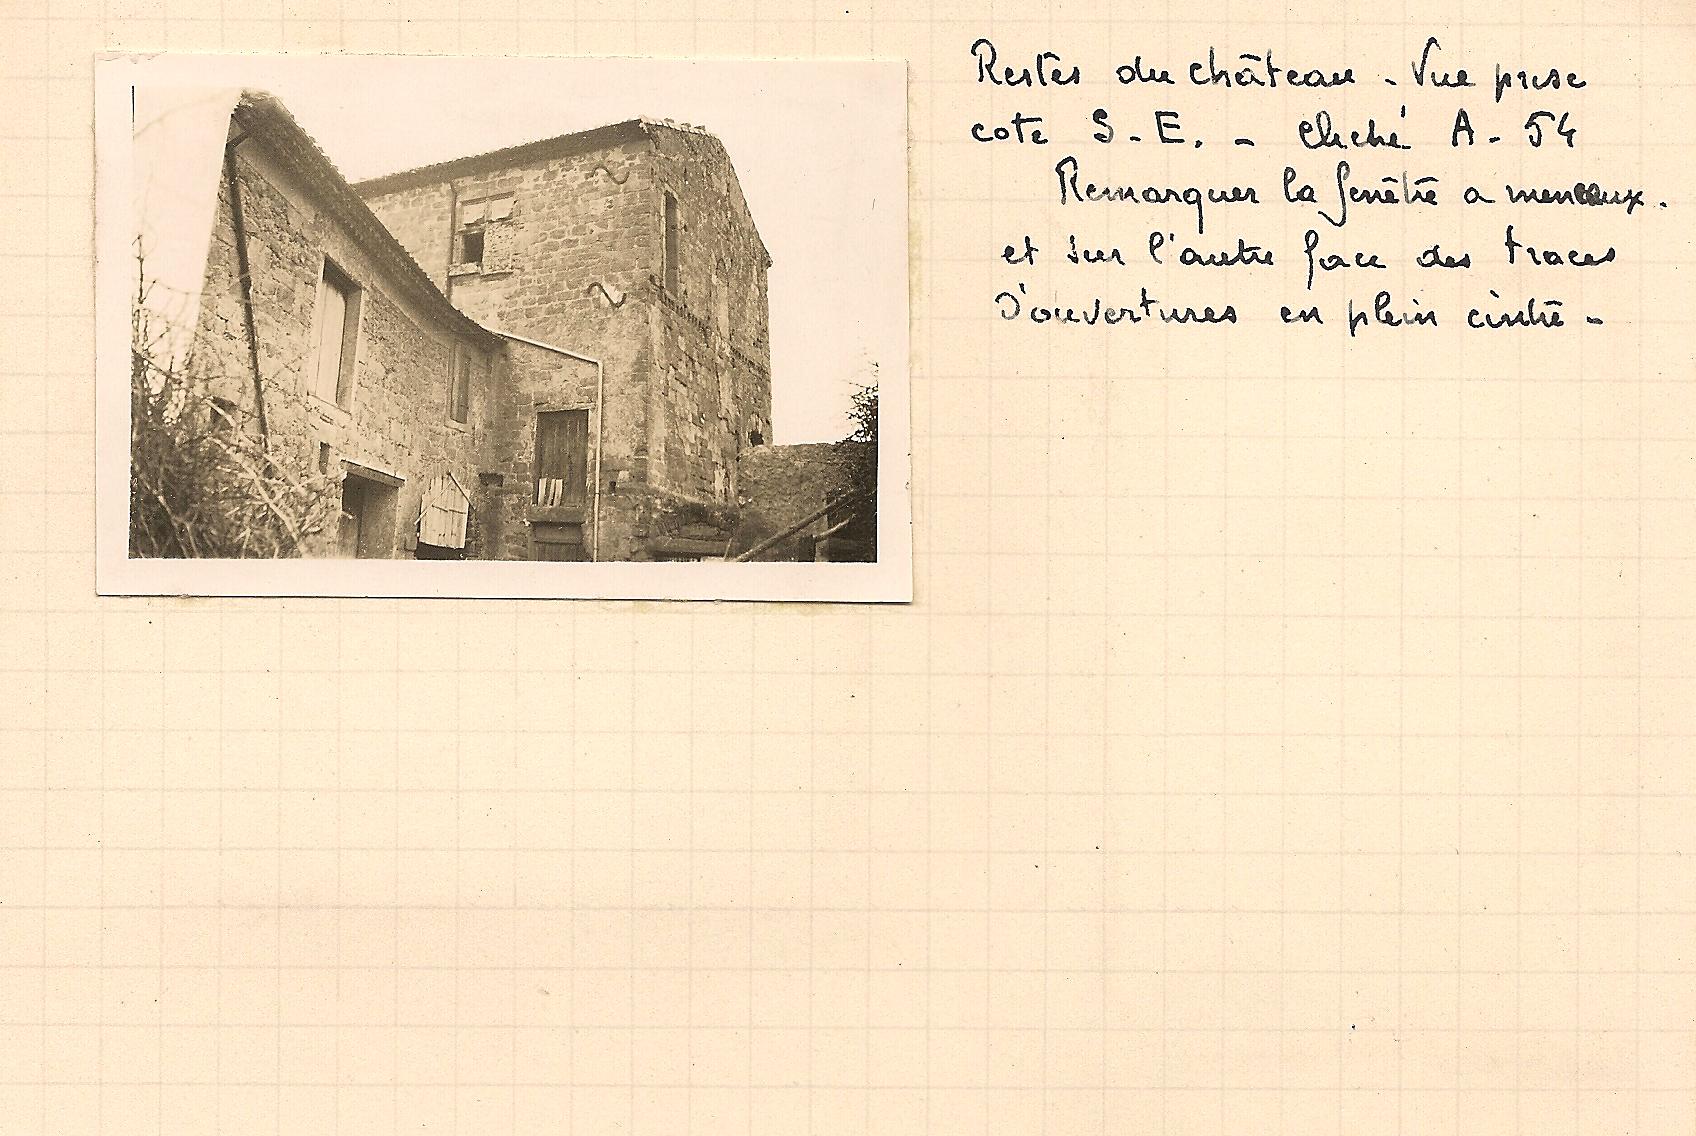 Restes du château - Vue prise
cote S - E. - Cliché A - 54
Remarquer la fenêtre a meneaux.
et sur l'autre face des traces
d'ouvertures en plein cintre -